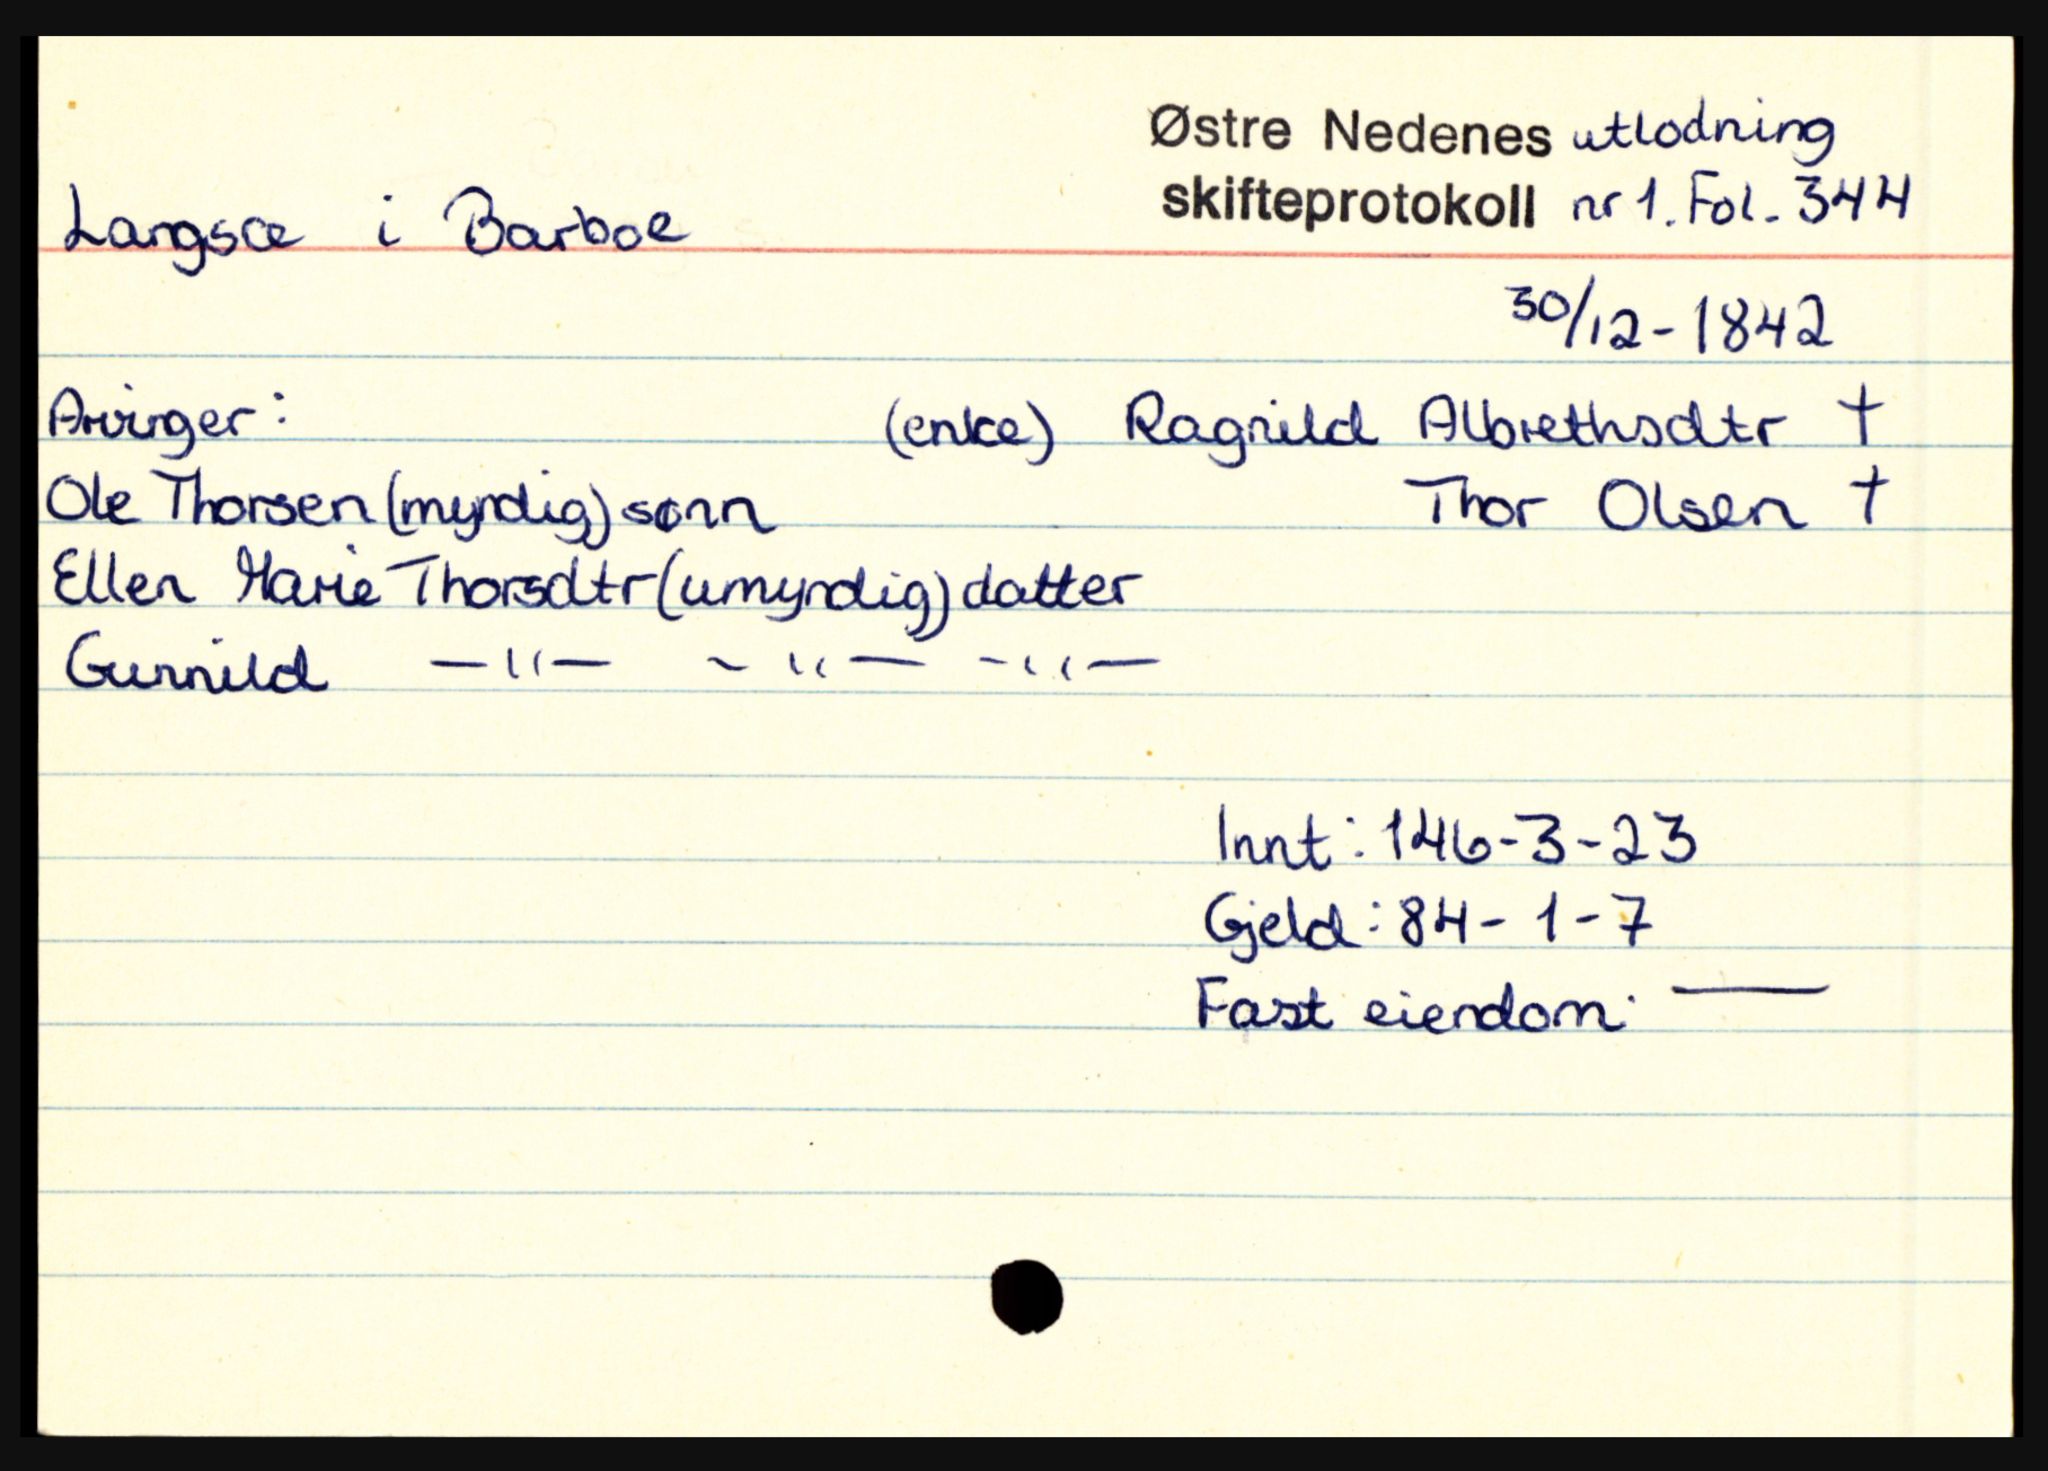 Østre Nedenes utlodning
Langsæ i Barboe skifteprotokoll nr 1. Fol. 344
30/12-1842
Arvinger: (enke) Ragnild Albrethsdtr †
Ole Thorsen (myndig) sønn Thor Olsen †
Ellen Marie Thorsdtr (umyndig) datter
Gunnild —"— —"— —"—
Innt: 146-3-23
Gjeld: 84-1-7
Fast eiendom: —